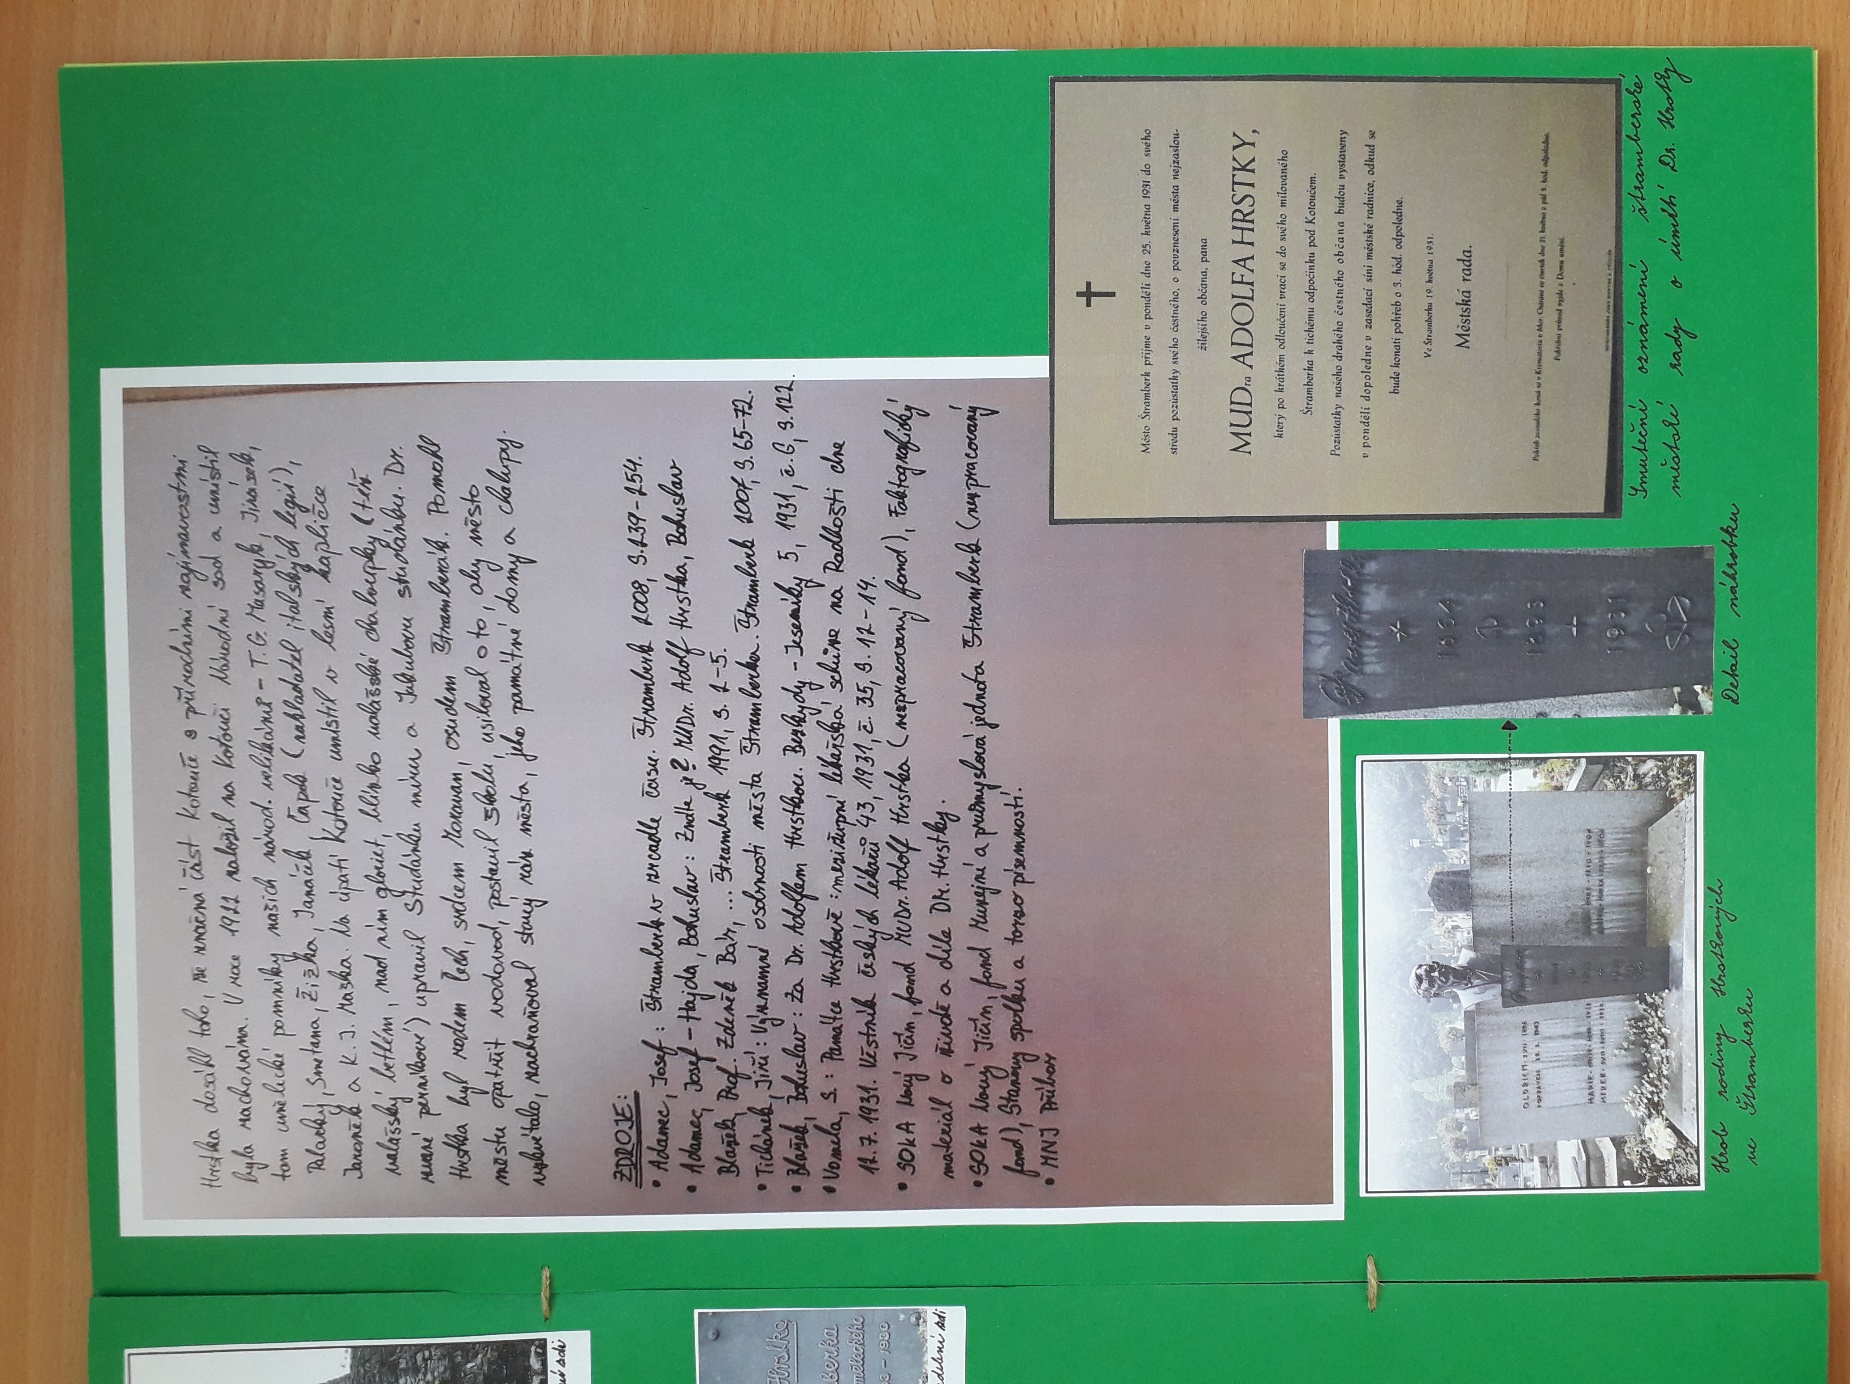 Hrstka dosáhl toho, že vzácná část Kotouče s přírodními zajímavostmi
byla zachována. V roce 1922 založil na Kotouči Národní sad a umístil
tam umělecké pomníky našich národ. velikánů - T. G. Masaryk, Jirásek,
Palacký, Smetana, Žižka, Janáček, Čapek (zakladatel italských legií),
Jaroněk a K. J. Maška. Na úpatí Kotouče umístil v lesní kapličce
valašský betlém, nad ním gloriet, blízko valašské chaloupky (též
zvané perníkové) upravil Studánku míru a Jakubovu studánku. Dr.
Hrstka byl rodem Čech, srdcem Moravan, osudem Štramberák. Pomohl
městu opatřit vodovod, postavil školu, usiloval o to, aby město
vzkvétalo, zachraňoval starý ráz města, jeho památné domy a chalupy.
ZDROJE:
• Adamec, Josef: Štramberk v zrcadle času. Štramberk 2008, s. 239-254.
• Adamec, Josef - Hajda, Bohuslav: Znáte je? MUDr. Adolf Hrstka, Bohuslav
Blažek, Prof. Zdeněk Bár, ... Štramberk 1991, s. 2-5.
• Tichánek, Jiří: Významné osobnosti města Štramberka. Štramberk 2007, s. 65-72.
• Blažek, Bohuslav: Za Dr. Adolfem Hrstkou. Beskydy - Jeseníky 5, 1931, č. 6, s. 122.
• Vomela, S.: Památce Hrstkově: mezižupní lékařská schůze na Radhošti dne
12. 7. 1931. Věstník českých lékařů 43, 1931, č. 35, s. 12-14.
• SOkA Nový Jičín, fond MUDr. Adolf Hrstka (nezpracovaný fond), Faktografický
materiál o životě a díle Dr. Hrstky.
• SOkA Nový Jičín, fond Muzejní a průmyslová jednota Štramberk (nezpracovaný
fond), Stanovy spolku a torzo písemností.
• MNJ Příbor
Město Štramberk přijme v pondělí dne 25. května 1931 do svého
středu pozůstatky svého čestného, o povznesení města nejzaslou-
žilejšího občana, pana
MUDra ADOLFA HRSTKY,
který po krátkém odloučení vrací se do svého milovaného
Štramberka k tichému odpočinku pod Kotoučem.
Pozůstatky našeho drahého čestného občana budou vystaveny
v pondělí dopoledne v zasedací síni městské radnice, odkud se
bude konati pohřeb o 3. hod. odpoledne.
Ve Štramberku 19. května 1931.
Městská rada.
Smuteční oznámení štramberské
městské rady o úmrtí Dr. Hrstky
1864
1893
1931
Detail náhrobku
OLDŘICH
Hrob rodiny Hrstkových
ve Štramberku
Hrstka